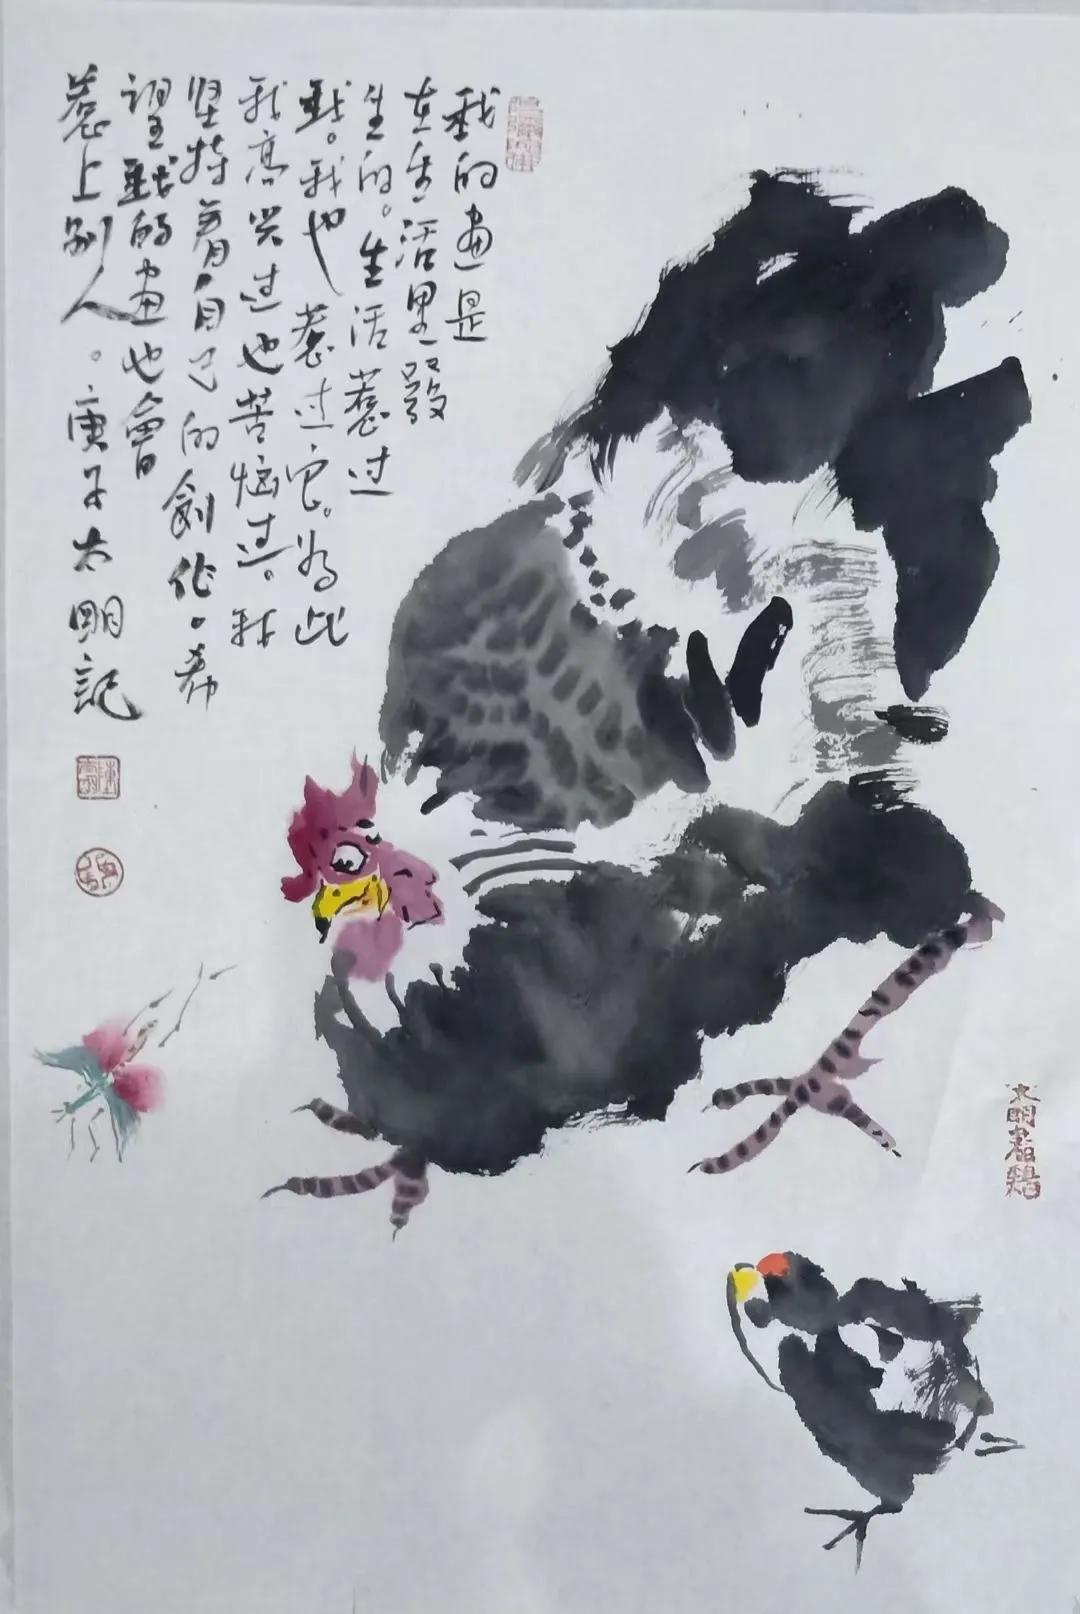 我的画是
在生活里發
生的。生活惹过
我。我也惹过它。为此
我高兴过也苦恼过。我
坚持着自己的創作。希
望我的画也會
惹上别人。庚子大明記
大明畫鷄